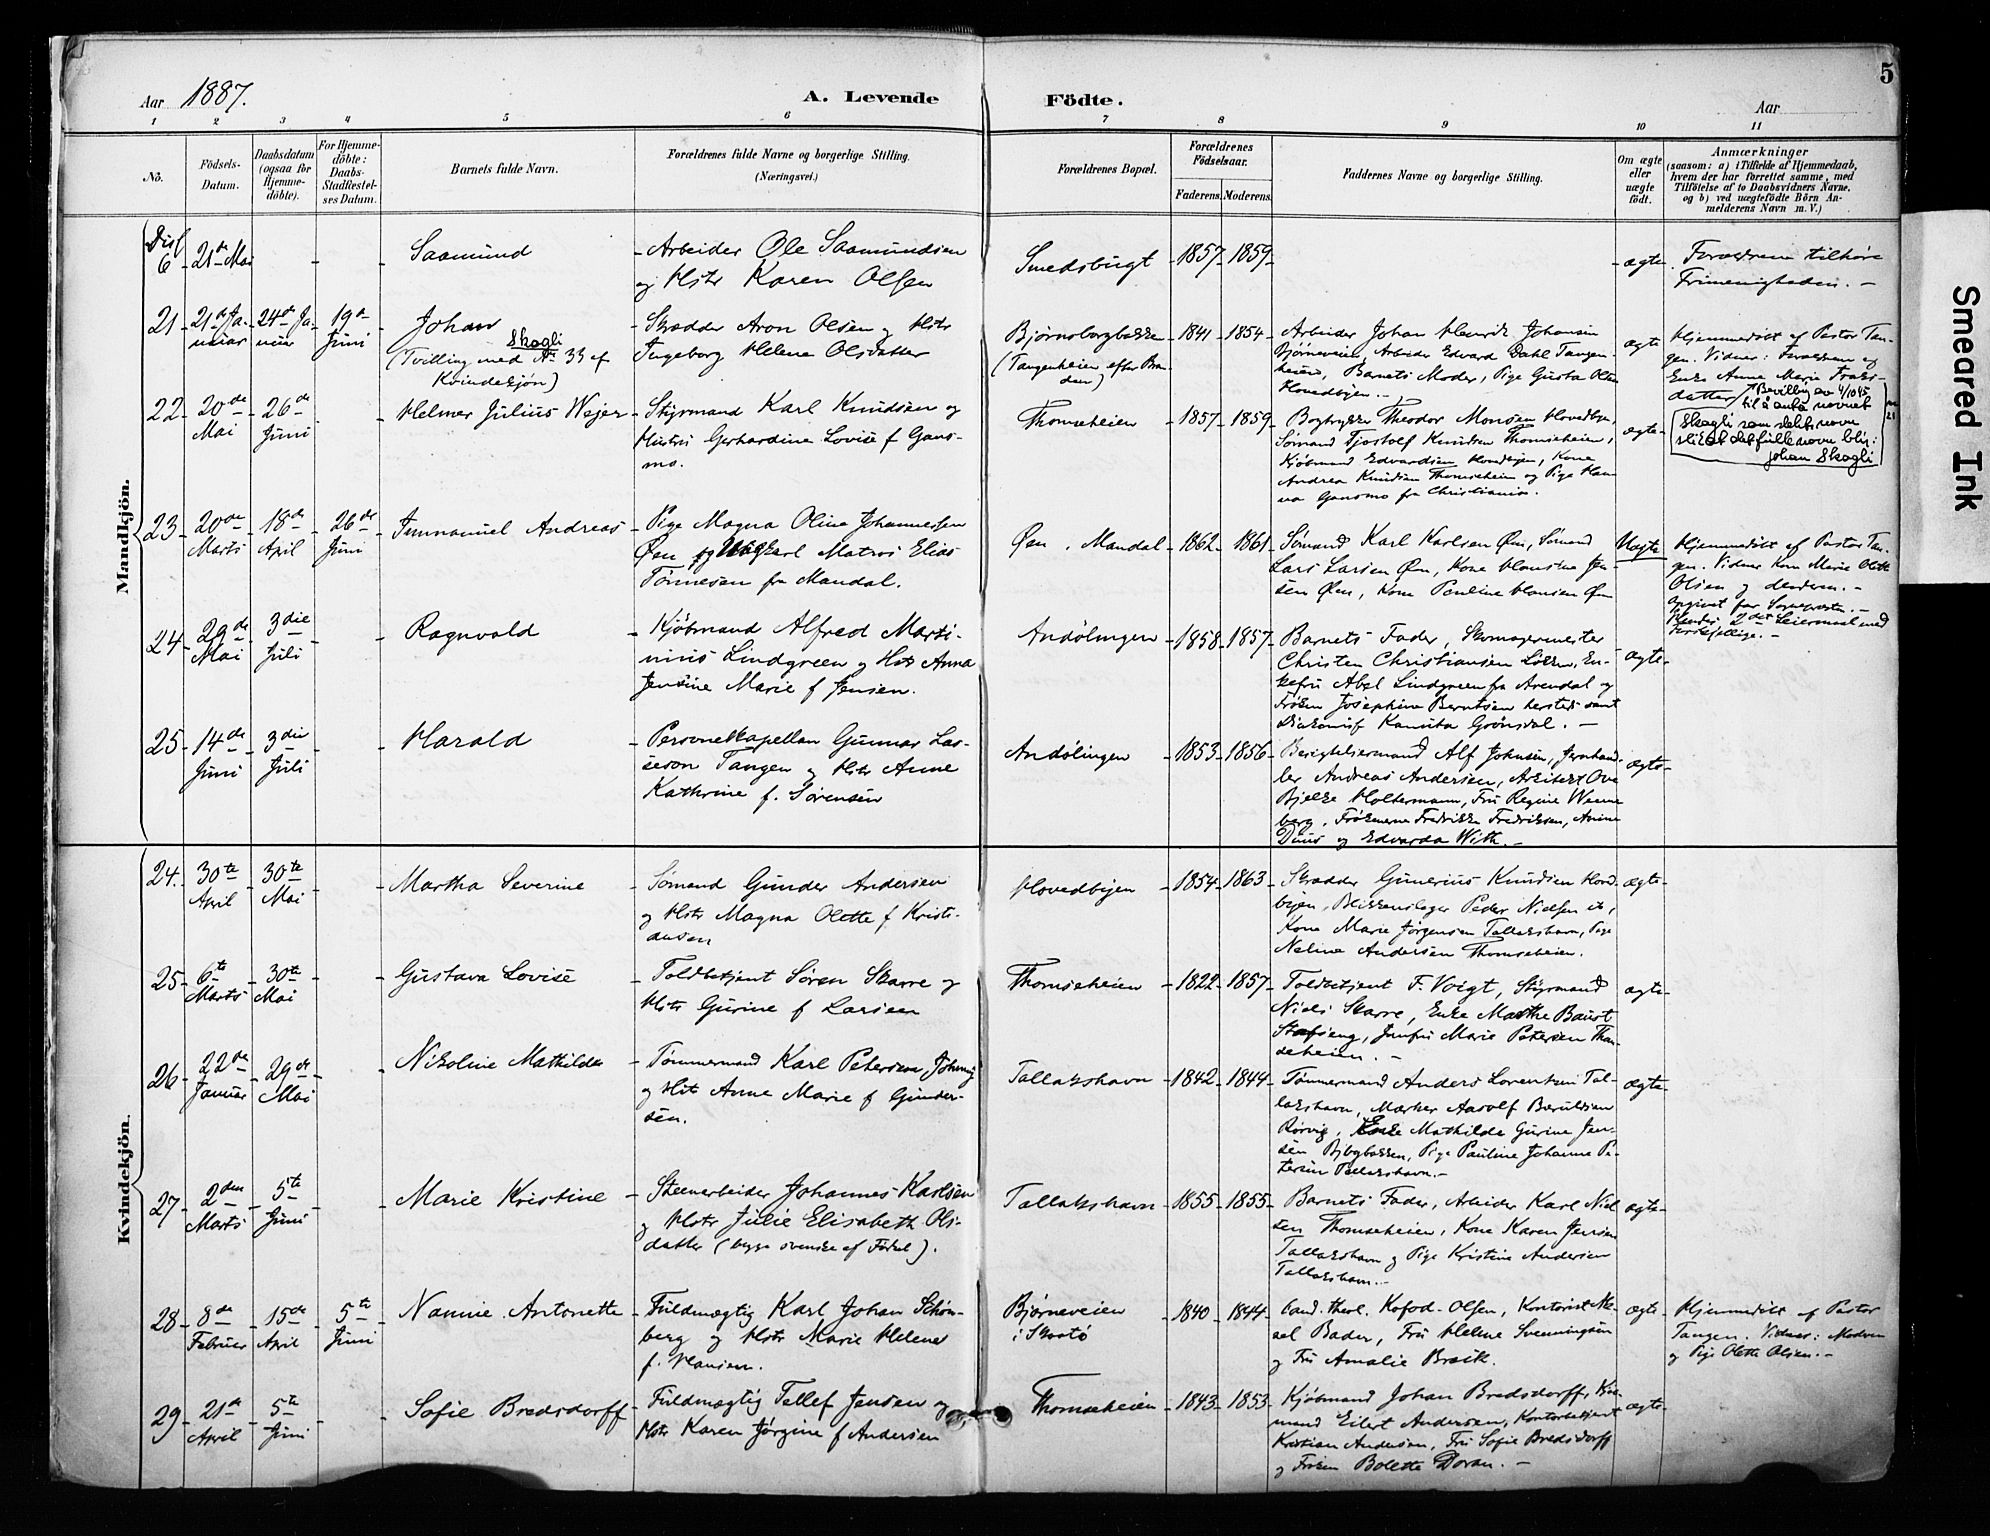 5
Aar 1887.
A. Levende Födte.
Aar
1 2 3 4 5 6 7 8 9 10 11
No.
Födsels-
Datum.
Daabsdatum
(ogsaa for
Hjemme-
döbte).
For Hjemme-
döbte:
Daabs-
Stadfæstel-
ses Datum.
Barnets fulde Navn.
Forældrenes fulde Navne og borgerlige Stilling.
(Næringsvei.)
Forældrenes Bopæl.
Forældrenes
Födselsaar.
Faderens. Moderens.
Faddernes Navne og borgerlige Stilling.
Om ægte
eller
uægte
födt.
Anmærkninger
(saasom: a) i Tilfælde af Hjemmedaab,
hvem der har forrettet samme, med
Tilföielse af to Daabsvidners Navne,
og b) ved uægtefödte Börn An-
melderens Navn m. V.)
Mandkjön.
Diss
6
21de Mai
Saamund
Arbeider Ole Saamundsen
og Hstr Karen Olsen
Smedsbugt
1857 1859
ægte
Forældrene tilhøre
Frimenigheden. –
21
21de Ja-
nuar
24de Ja-
nuar
19de
Juni
Johan
Skogli
(Tvilling med No 33 af
Kvindekjøn)
Skrædder Aron Olsen og Hstr
Ingeborg Helene Olsdatter
Bjørnsborgbakken
(Tangenheien efter Bran-
den)
1841 1854
Arbeider Johan Henrik Johansen
Bjørneveien, Arbeider Edvard Dahl Tangen-
heien, Barnets Moder, Pige Gusta Olsen
Hovedbyen.
ægte
Hjemmedøbt af Pastor Tan-
gen. Vidner: Forældrene og
Enke Anne Marie
datter
Bevilling av 4/10 45
til å anta navnet
Skogli som slektsnavn
slik at det fulle navn blir:
Johan Skogli
nr 21
22
20de
Mai
26de
Juni
Helmer Julius Wejer
Styrmand Karl Knudsen og
Hustru Gerhardine Lovise f Gans-
mo.
Thomseheien
1857 1859
Bogtrykker Theodor Monsen Hovedbyen,
Sømand Tjostolf Knudsen Thomseheien,
Kjøbmand Edvardsen Hovedbyen, Kone
Andrea Knudsen Thomseheien og Pige Han-
na Gansmo fra Christiania.
ægte
23
20de
Marts
18de
April
26de
Juni
Immanuel Andreas
Pige Magna Oline Johannessen
Øen og Ungkarl Matros Elias
Tønnesen fra Mandal.
Øen. Mandal
1862 1861
Sømand Karl Karlsen Øen, Sømand
Lars Larsen Øen, Kone Hansine Jen-
sen Øen, Kone Pauline Hansen Øen
Uægte
Hjemmedøbt af Pastor Tan-
gen. Vidner Kone Marie Olette
Olsen og
Angivet for Sognepresten. –
2det Leiermaal med
forskjellige. –
24
29de
Mai
3die
Juli
Ragnvald
Kjøbmand Alfred Marti-
nius Lindgreen og Hstr Anna
Jensine Marie f Jensen.
Andølingen
1858 1857
Barnets Fader, Skomagermester
Christen Christiansen Løkken, En-
kefru Abel Lindgreen fra Arendal og
Frøken Josephine Berntsen hersteds samt
Diakonisse Kanuta Grønsdal. –
ægte
25
14de
Juni
3die
Juli
Harald
Personelkapellan Gunnar Las-
seson Tangen og Hstr Anne
Kathrine f. Sørensen
Andølingen
1853 1856
Berigtelsermand Alf Johnsen, Jernhand-
ler Andreas Andersen, Arkitekt Ove
Bjelke Holtermann, Fru Regine Wenne-
berg, Frøknerne Fredrikke Fredriksen, Anine
Duus og Edvarda With. –
ægte
Kvindekjön.
24.
30te
April
30te
Mai
Martha Severine
Sømand Gunder Andersen
og Hstr Magna Olette f Kristi-
ansen
Hovedbyen
1854 1863
Skrædder Gunerius Knudsen Hoved-
byen, Blikkenslager Peder Nielsen ib,
Kone Marie Jørgensen Tallakshavn, Pige
Neline Andersen Thomseheien.
ægte
25
6te
Marts
30te
Mai
Gustava Lovise
Toldbetjent Søren Skarre og
Hstr Gurine f Larsen
Thomseheien
1822 1857
Toldbetjent F. Voigt, Styrmand
Niels Skarre, Enke Marthe Baust
Stafseng, Jomfru Marie Petersen Thom-
seheien. –
ægte
26
22de
Januar
29de
Mai
Nikoline Mathilde
Tømmermand Karl Petersen
og Hstr Anne Marie f Gunder-
sen.
Tallakshavn
1842 1844
Tømmermand Anders Lorentsen Tal-
lakshavn, Mærker Aasolf Beruldsen
Rørvig, Enke Mathilde Gurine Jen-
sen Bjbgbakken, Pige Pauline Johanne Pe-
tersen Tallakshavn. –
ægte
27
2den
Marts
5te
Juni
Marie Kristine
Steenarbeider Johannes Karlsen
og Hstr Julie Elisabeth Ols-
datter (begge svenske af Fødsel).
Tallakshavn
1855 1855
Barnets Fader, Arbeider Karl Niel-
sen Thomseheien, Kone Karen Jensen
Tallakshavn og Pige Kristine Andersen
Tallakshavn. –
ægte
28
8de
Februar
15de
April
5te
Juni
Nannie Antonette
Fuldmægtig Karl Johan Schøn-
berg og Hstr Marie Helene
f. Hansen.
Bjørneveien
i Skaatø
1840 1844
Cand. theol. Kofod-Olsen, Kontorist Ak-
sel Bader, Fru Helene Svenningsen
og Fru Amalie Bræik.
ægte
Hjemmedøbt af Pastor
Tangen. Vidner: Moderen
og Pige Olette Olsen. –
29
21de
April
5te
Juni
Sofie Bredsdorff
Fuldmægtig Tellef Jensen og
Hstr Karen Jørgine f Andersen
Thomseheien
1843 1853
Kjøbmand Johan Bredsdorff, Kjøb-
mand Eilert Andersen, Kontorbetjent
Kristian Andersen, Fru Sofie Bredsdorff
og Frøken Bolette Doran. –
ægte
Smeared Ink